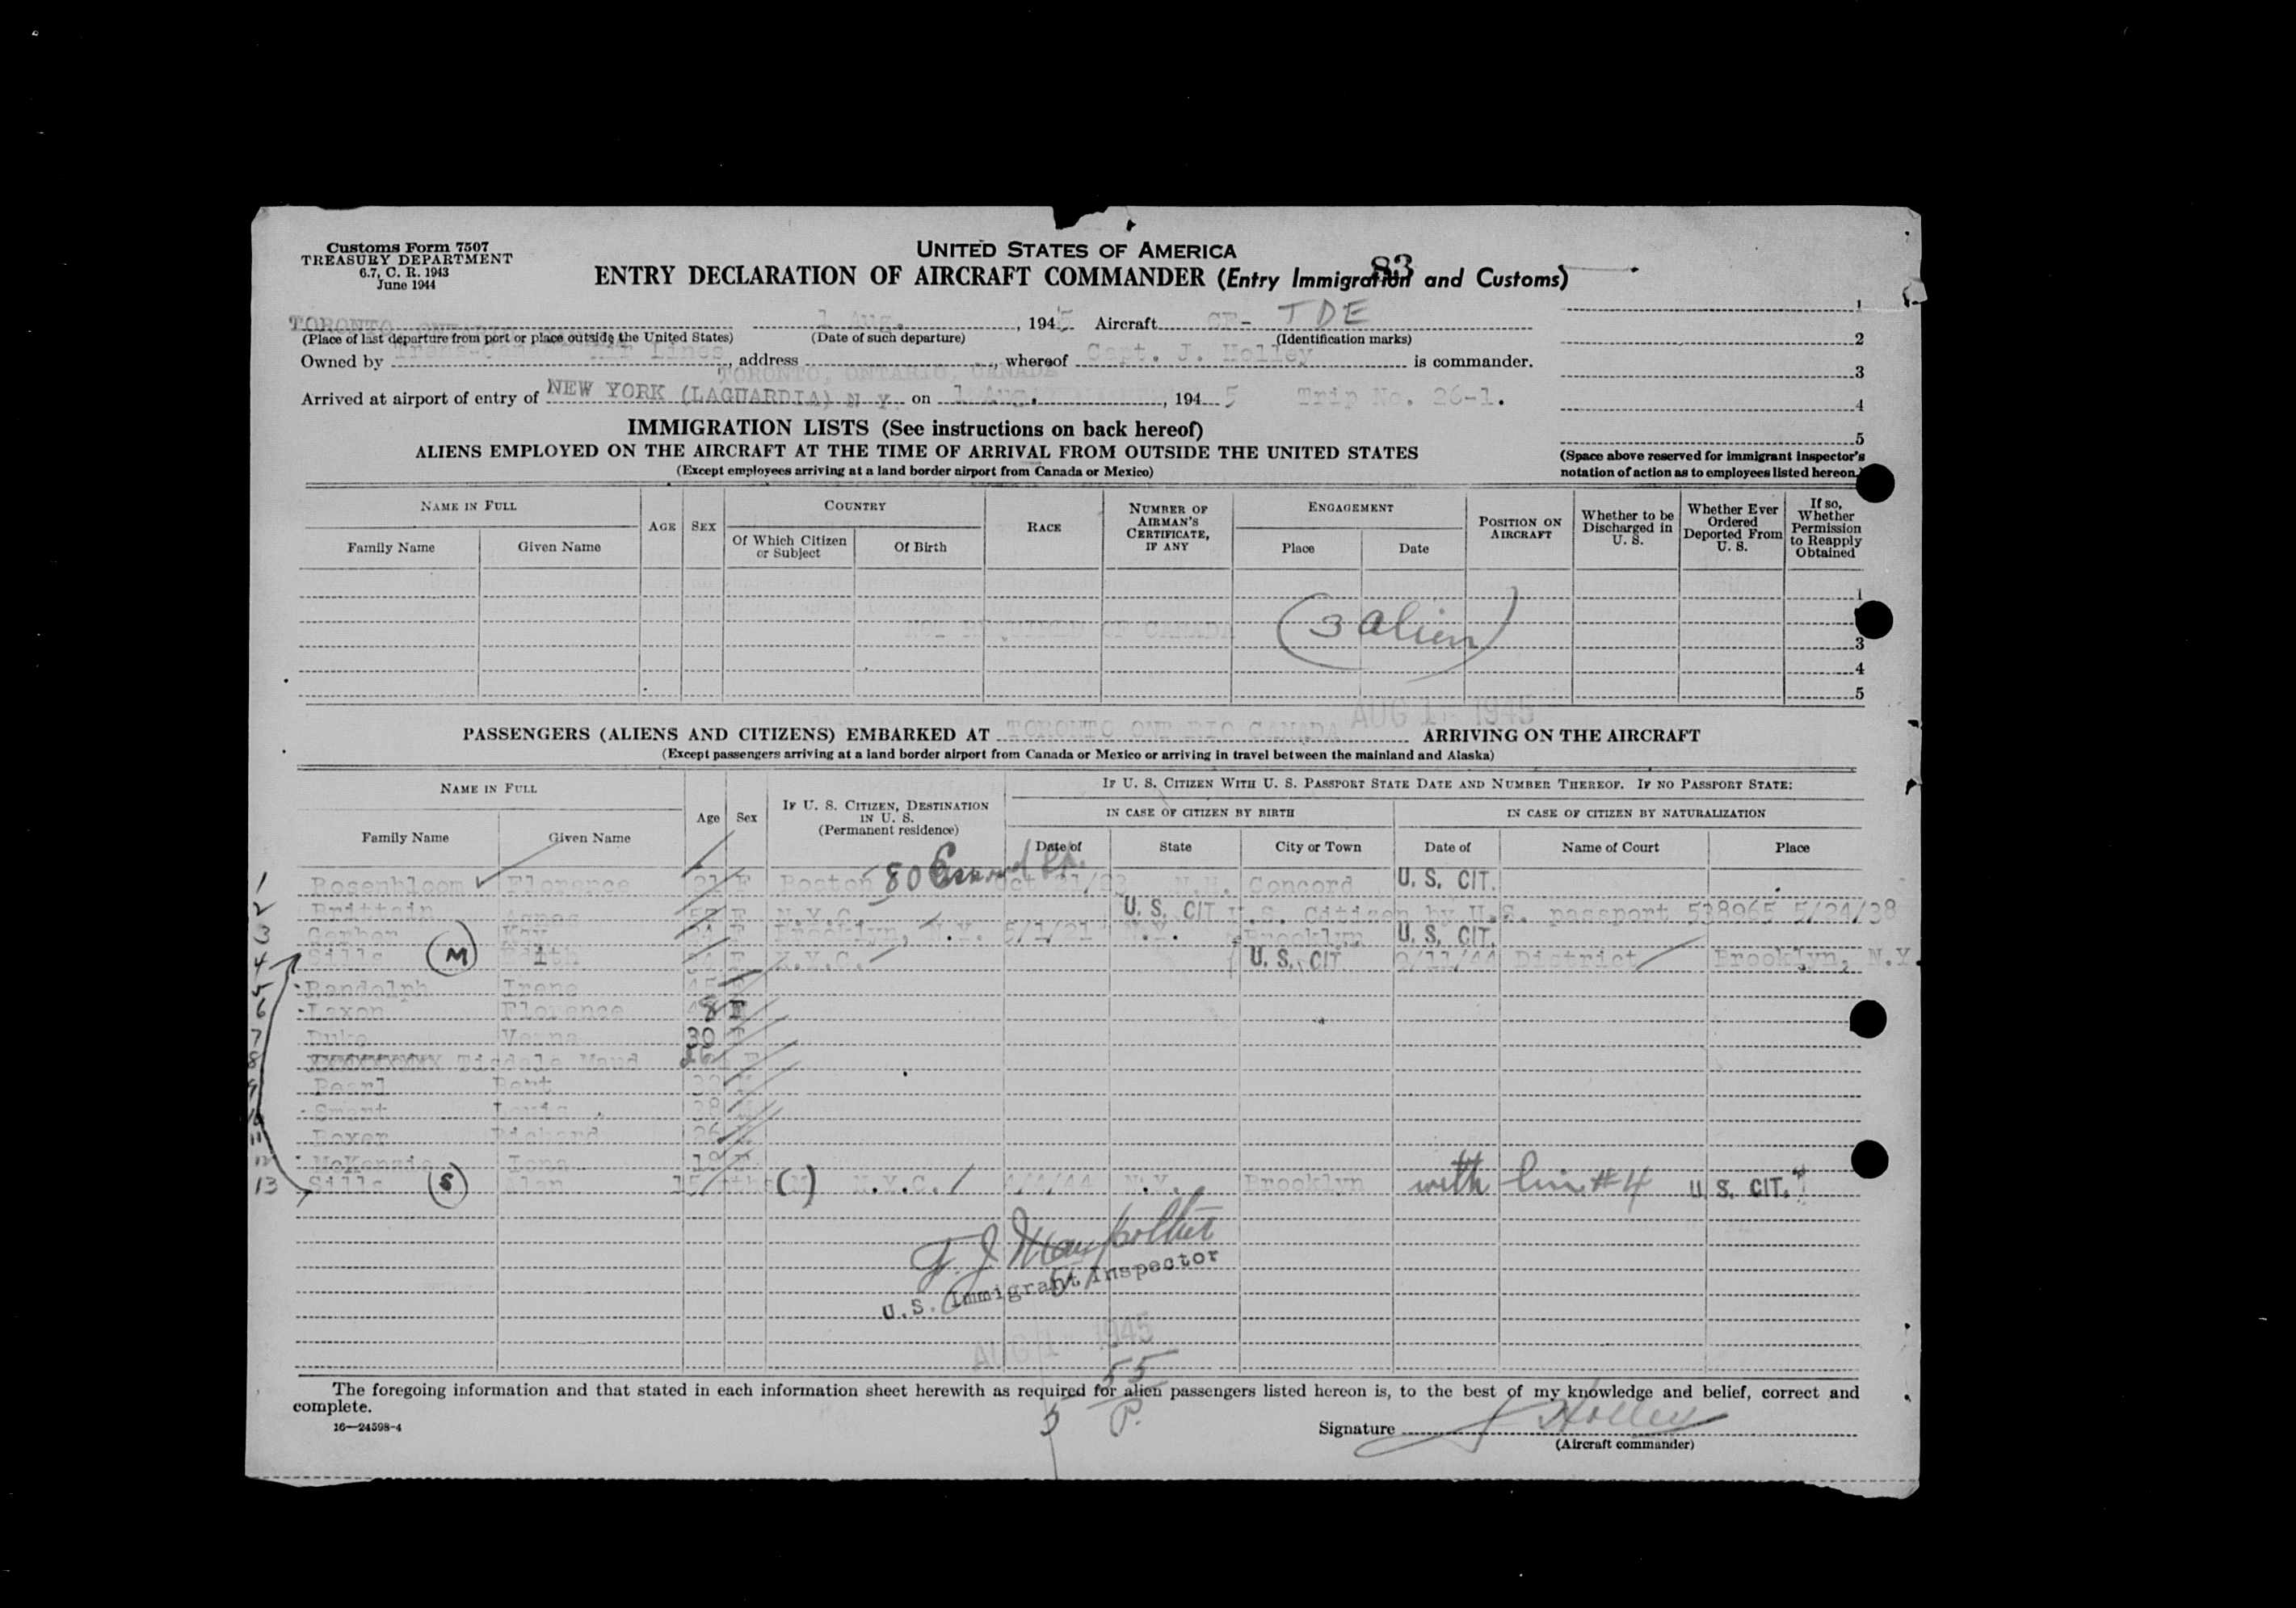 Customs Form 7507
TREASURY DEPARTMENT
6.7, C. R. 1943
June 1944
UNITED STATES OF AMERICA
83
ENTRY DECLARATION OF AIRCRAFT COMMANDER (Entry Immigration and Customs)
TORONTO, ONTARIO 1 Aug., 1945 Aircraft CF- TDE
(Place of last departure from port or place outside the United States) (Date of such departure) (Identification marks)
Owned by Air Lines, address TORONTO, ONTARIO, CANADA, whereof Capt. J. Holley is commander.
Arrived at airport of entry of NEW YORK (LAGUARDIA) N.Y. on 1 Aug., 1945 Trip No. 26-1.
1
2
3
4
5
IMMIGRATION LISTS (See instructions on back hereof)
ALIENS EMPLOYED ON THE AIRCRAFT AT THE TIME OF ARRIVAL FROM OUTSIDE THE UNITED STATES
(Except employees arriving at a land border airport from Canada or Mexico)
(Space above reserved for immigrant inspector's
notation of action as to employees listed hereon.)
NAME IN FULL AGE SEX COUNTRY RACE NUMBER OF AIRMAN'S CERTIFICATE, IF ANY ENGAGEMENT POSITION ON AIRCRAFT Whether to be Discharged in U. S. Whether Ever Ordered Deported From U. S. If so, Whether Permission to Reapply Obtained
Family Name Given Name Of Which Citizen or Subject Of Birth Place Date
1
(3 alien)
3
4
5
AUG 1 1945
PASSENGERS (ALIENS AND CITIZENS) EMBARKED AT TORONTO ONTARIO CANADA ARRIVING ON THE AIRCRAFT
(Except passengers arriving at a land border airport from Canada or Mexico or arriving in travel between the mainland and Alaska)
NAME IN FULL Age Sex IF U. S. CITIZEN, DESTINATION IN U. S. (Permanent residence) IF U. S. CITIZEN WITH U. S. PASSPORT STATE DATE AND NUMBER THEREOF. IF NO PASSPORT STATE:
IN CASE OF CITIZEN BY BIRTH IN CASE OF CITIZEN BY NATURALIZATION
Family Name Given Name Date of State City or Town Date of Name of Court Place
1 Rosenbloom Florence 21 F Boston 80 N.H. Concord U. S. CIT.
2 Brittain Agnes 57 F N.Y.C. U. S. CIT U.S. Citizen by U.S. passport 538965 5/24/38
3 Gerber Kay 24 F Brooklyn, N.Y. 5/1/21 N.Y. Brooklyn U. S. CIT.
4 Sills (M) F N.Y.C. U. S. CIT District Brooklyn, N.Y.
5 Randolph Irene 45 F
6 Laxon Florence 48 F
7 Duke Verna 30 F
8 XXXXXXXXX Tisdale Maud 26 F
9 Pearl
10 Smart Louis 38 M
11 Boxer Richard 26 M
12 McKenzie Iona 18 F
13 Sills (S) Alan 15 mths (M) N.Y.C. 4/4/44 N.Y. Brooklyn with line #4 U. S. CIT.
U.S. Immigrant Inspector
AUG 1 1945
55
The foregoing information and that stated in each information sheet herewith as required for alien passengers listed hereon is, to the best of my knowledge and belief, correct and
complete.
5 P.
16—24598-4
Signature J Holley
(Aircraft commander)